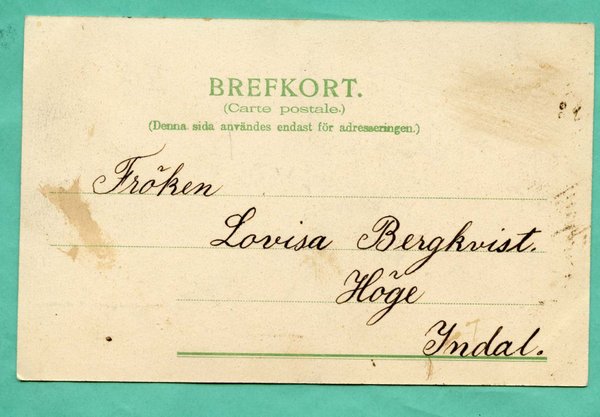 BREFKORT.
(Carte postale.)
(Denna sida användes endast för adresseringen.)
Fröken
Lovisa Bergkvist.
Höge
Indal.